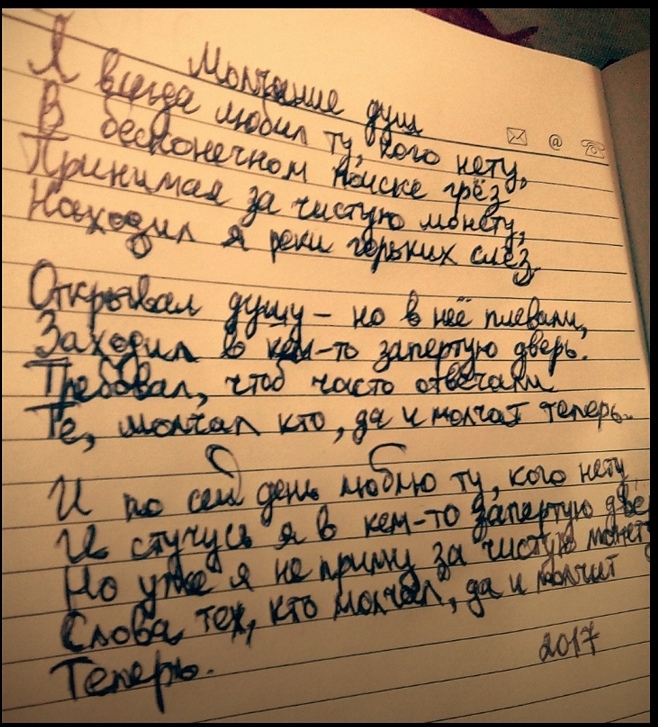 Молчание душ
Я всегда любил ту, кого нету,
В бесконечном поиске грёз
Принимая за чистую монету,
Находил я реки горьких слёз.
Открывал душу - но в неё плевали,
Заходил в кем-то запертую дверь.
Требовал, чтоб часто отвечали
Те, молчал кто, да и молчат теперь.
И по сей день люблю ту, кого нету,
И стучусь я в кем-то запертую две
Но уже я не приму за чистую монету
Слова тех, кто молчал, да и молчит
Теперь.
2017